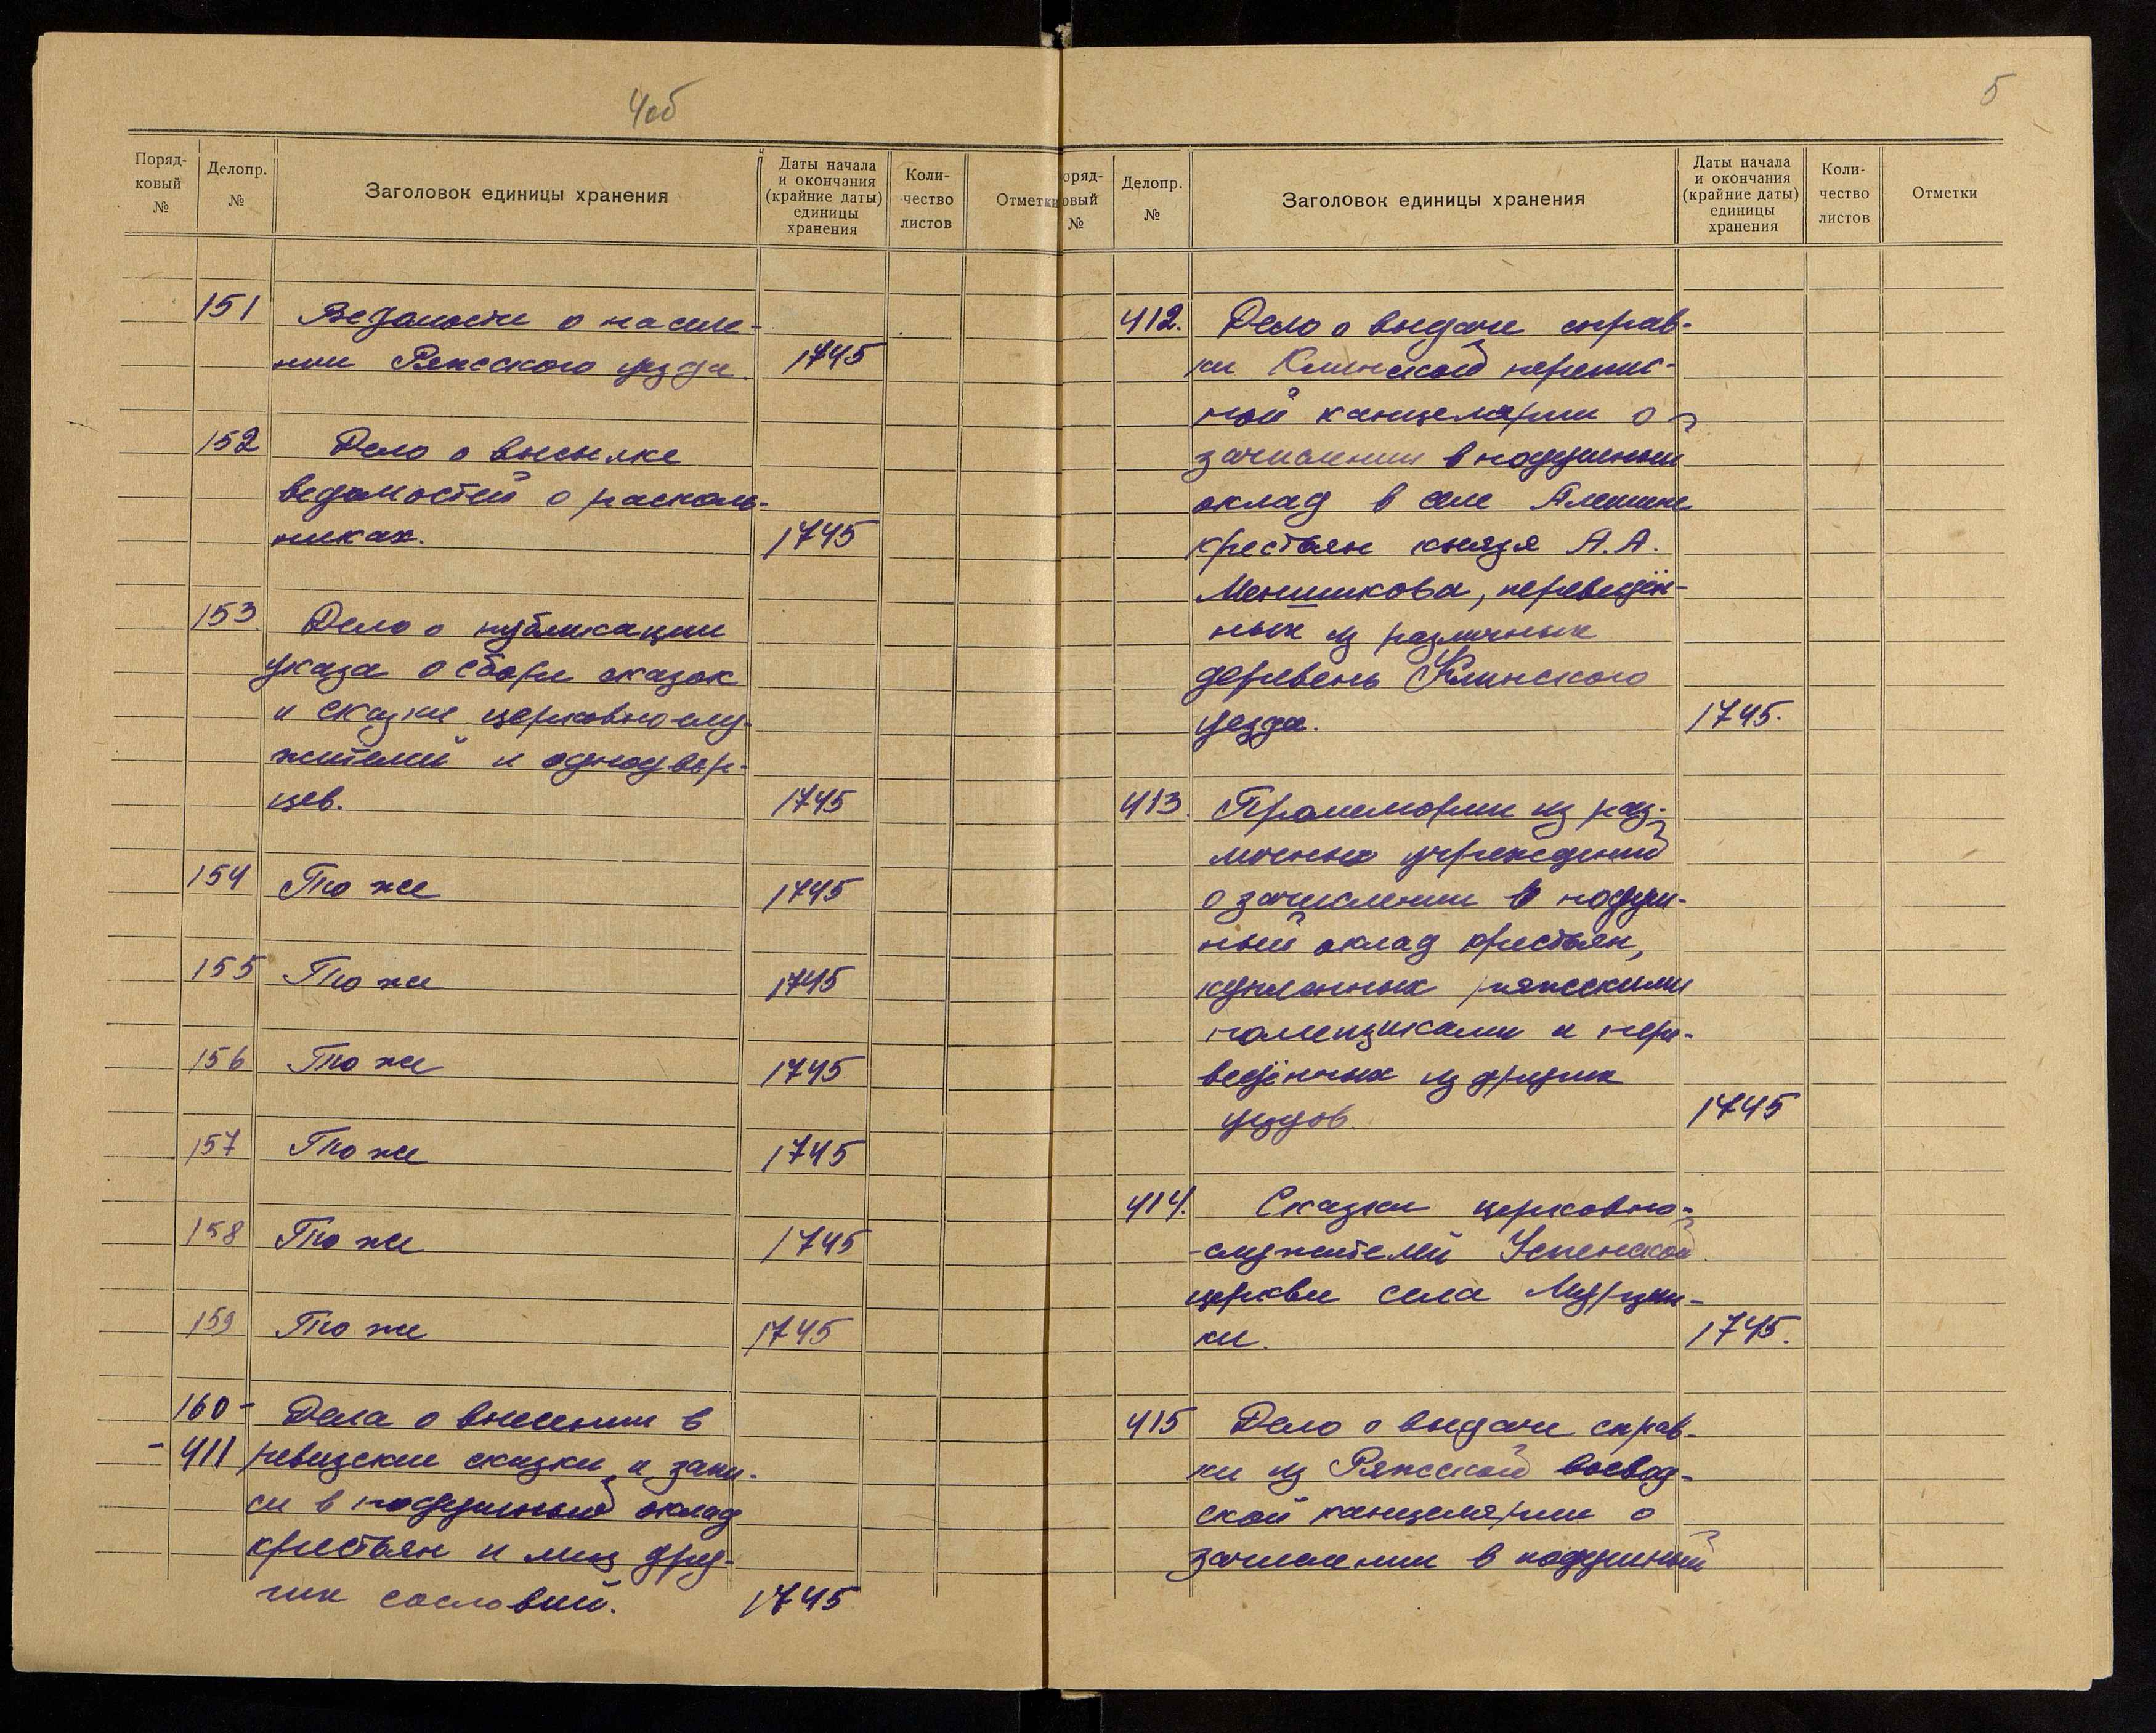 4об
Поряд-
ковый
№
Делопр.
№
Заголовок единицы хранения
Даты начала
и окончания
(крайние даты)
единицы
хранения
Коли-
чество
листов
Отметки
151 Ведомости о населе-
нии Ряжского уезда 1745
152 Дело о высылке
ведомостей о расколь-
никах. 1745
153 Дело о публикации
указа о сборе сказок
и сказки церковнослу-
жителей и однодвор-
цев. 1745
154 То же 1745
155 То же 1745
156 То же 1745
157 То же 1745
158 То же 1745
159 То же 1745
160- Дела о внесении в
-411 ревизские сказки и запи-
си в подушный оклад
крестьян и лиц дру-
гих сословий. 1745
5
оряд-
овый
№
Делопр.
№
Заголовок единицы хранения
Даты начала
и окончания
(крайние даты)
единицы
хранения
Коли-
чество
листов
Отметки
412. Дело о выдаче справ-
ки Клинской перепис-
ной канцелярии о
зачислении в подушный
оклад в селе Алешине
крестьян князя А.А.
Меншикова, переведён-
ных из различных
деревень Клинского
уезда. 1745.
413. Промемории из раз-
личных учреждений
о зачислении в подуш-
ный оклад крестьян,
купленных ряжскими
помещиками и пере-
ведённых из других
уездов. 1745
414. Сказки церковно-
-служителей Успенской
церкви села
ки. 1745.
415 Дело о выдаче справ-
ки из Ряжской воевод-
ской канцелярии о
зачислении в подушный